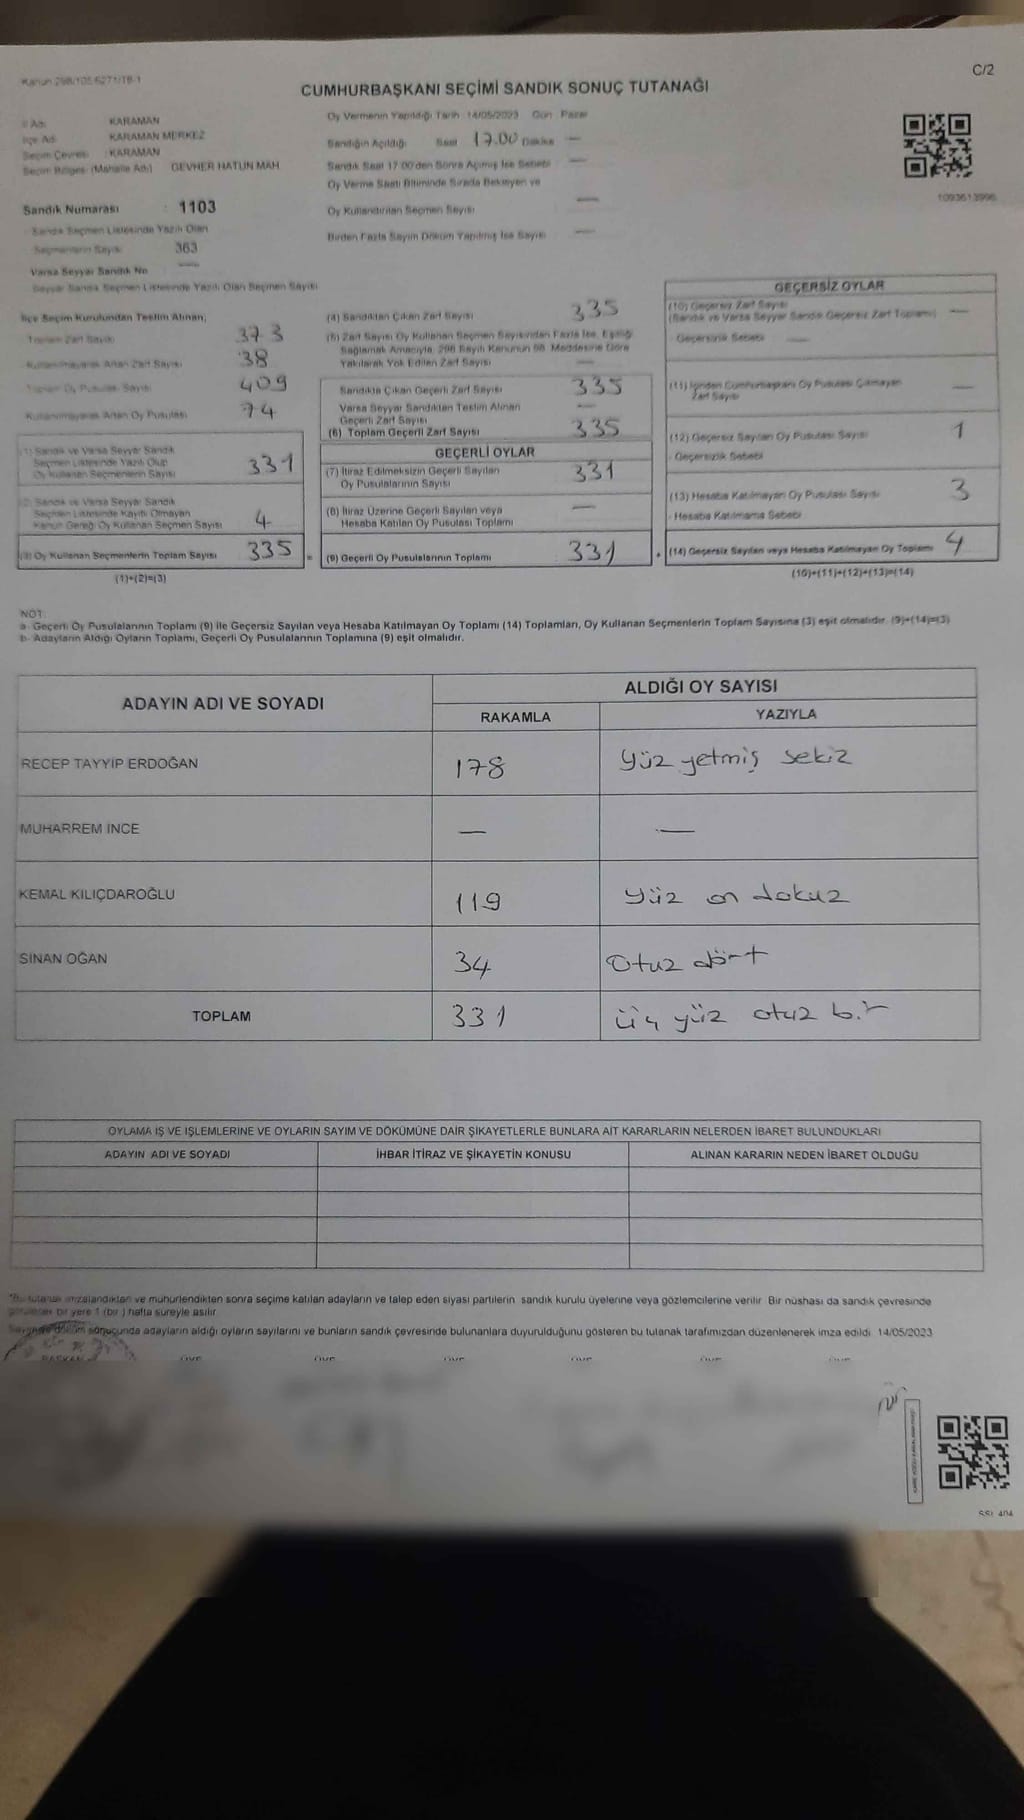 Kanun 298/105 6271/TB-1
C/2
CUMHURBAŞKANI SEÇİMİ SANDIK SONUÇ TUTANAĞI
İl Adı: KARAMAN
İlçe Adı: KARAMAN MERKEZ
Seçim Çevresi : KARAMAN
Seçim Bölgesi (Mahalle Adı) GEVHER HATUN MAH
Sandık Numarası : 1103
Sandık Seçmen Listesinde Yazılı Olan
Seçmenlerin Sayısı 363
Varsa Seyyar Sandık No —
Seyyar Sandık Seçmen Listesinde Yazılı Olan Seçmen Sayısı
Oy Vermenin Yapıldığı Tarih : 14/05/2023 Gün : Pazar
Sandığın Açıldığı Saat 17.00 Dakika —
Sandık Saat 17:00'den Sonra Açılmış İse Sebebi —
Oy Verme Saati Bitiminde Sırada Bekleyen ve
Oy Kullandırılan Seçmen Sayısı —
Birden Fazla Sayım Döküm Yapılmış İse Sayısı —
1093613996
İlçe Seçim Kurulundan Teslim Alınan;
Toplam Zarf Sayısı 373
Kullanılmayarak Artan Zarf Sayısı 38
Toplam Oy Pusulası Sayısı 409
Kullanılmayarak Artan Oy Pusulası 74
(1) Sandık ve Varsa Seyyar Sandık
Seçmen Listesinde Yazılı Olup
Oy Kullanan Seçmenlerin Sayısı 331
(2) Sandık ve Varsa Seyyar Sandık
Seçmen Listesinde Kayıtlı Olmayan
Kanun Gereği Oy Kullanan Seçmen Sayısı 4
(3) Oy Kullanan Seçmenlerin Toplam Sayısı 335 =
(1)+(2)=(3)
(4) Sandıktan Çıkan Zarf Sayısı 335
(5) Zarf Sayısı Oy Kullanan Seçmen Sayısından Fazla İse, Eşitliği
Sağlamak Amacıyla, 298 Sayılı Kanunun 98. Maddesine Göre
Yakılarak Yok Edilen Zarf Sayısı —
Sandıkta Çıkan Geçerli Zarf Sayısı 335
Varsa Seyyar Sandıktan Teslim Alınan
Geçerli Zarf Sayısı —
(6) Toplam Geçerli Zarf Sayısı 335
GEÇERLİ OYLAR
(7) İtiraz Edilmeksizin Geçerli Sayılan
Oy Pusulalarının Sayısı 331
(8) İtiraz Üzerine Geçerli Sayılan veya
Hesaba Katılan Oy Pusulası Toplamı —
(9) Geçerli Oy Pusulalarının Toplamı 331 +
GEÇERSİZ OYLAR
(10) Geçersiz Zarf Sayısı
(Sandık ve Varsa Seyyar Sandık Geçersiz Zarf Toplamı) —
Geçersizlik Sebebi —
(11) İçinden Cumhurbaşkanı Oy Pusulası Çıkmayan
Zarf Sayısı —
(12) Geçersiz Sayılan Oy Pusulası Sayısı 1
- Geçersizlik Sebebi
(13) Hesaba Katılmayan Oy Pusulası Sayısı 3
- Hesaba Katılmama Sebebi
(14) Geçersiz Sayılan veya Hesaba Katılmayan Oy Toplamı 4
(10)+(11)+(12)+(13)=(14)
NOT:
a- Geçerli Oy Pusulalarının Toplamı (9) ile Geçersiz Sayılan veya Hesaba Katılmayan Oy Toplamı (14) Toplamları, Oy Kullanan Seçmenlerin Toplam Sayısına (3) eşit olmalıdır. (9)+(14)=(3)
b- Adayların Aldığı Oyların Toplamı, Geçerli Oy Pusulalarının Toplamına (9) eşit olmalıdır.
ADAYIN ADI VE SOYADI
ALDIĞI OY SAYISI
RAKAMLA YAZIYLA
RECEP TAYYİP ERDOĞAN 178 yüz yetmiş sekiz
MUHARREM İNCE — —
KEMAL KILIÇDAROĞLU 119 yüz on dokuz
SİNAN OĞAN 34 Otuz dört
TOPLAM 331 üç yüz otuz bir
OYLAMA İŞ VE İŞLEMLERİNE VE OYLARIN SAYIM VE DÖKÜMÜNE DAİR ŞİKAYETLERLE BUNLARA AİT KARARLARIN NELERDEN İBARET BULUNDUKLARI
ADAYIN ADI VE SOYADI İHBAR İTİRAZ VE ŞİKAYETİN KONUSU ALINAN KARARIN NEDEN İBARET OLDUĞU
*Bu tutanak imzalandıktan ve mühürlendikten sonra seçime katılan adayların ve talep eden siyasi partilerin sandık kurulu üyelerine veya gözlemcilerine verilir. Bir nüshası da sandık çevresinde
görülecek bir yere 1 (bir) hafta süreyle asılır.
Sayım ve döküm sonucunda adayların aldığı oyların sayılarını ve bunların sandık çevresinde bulunanlara duyurulduğunu gösteren bu tutanak tarafımızdan düzenlenerek imza edildi. 14/05/2023
BAŞKAN ÜYE ÜYE ÜYE ÜYE ÜYE ÜYE
SSL 404